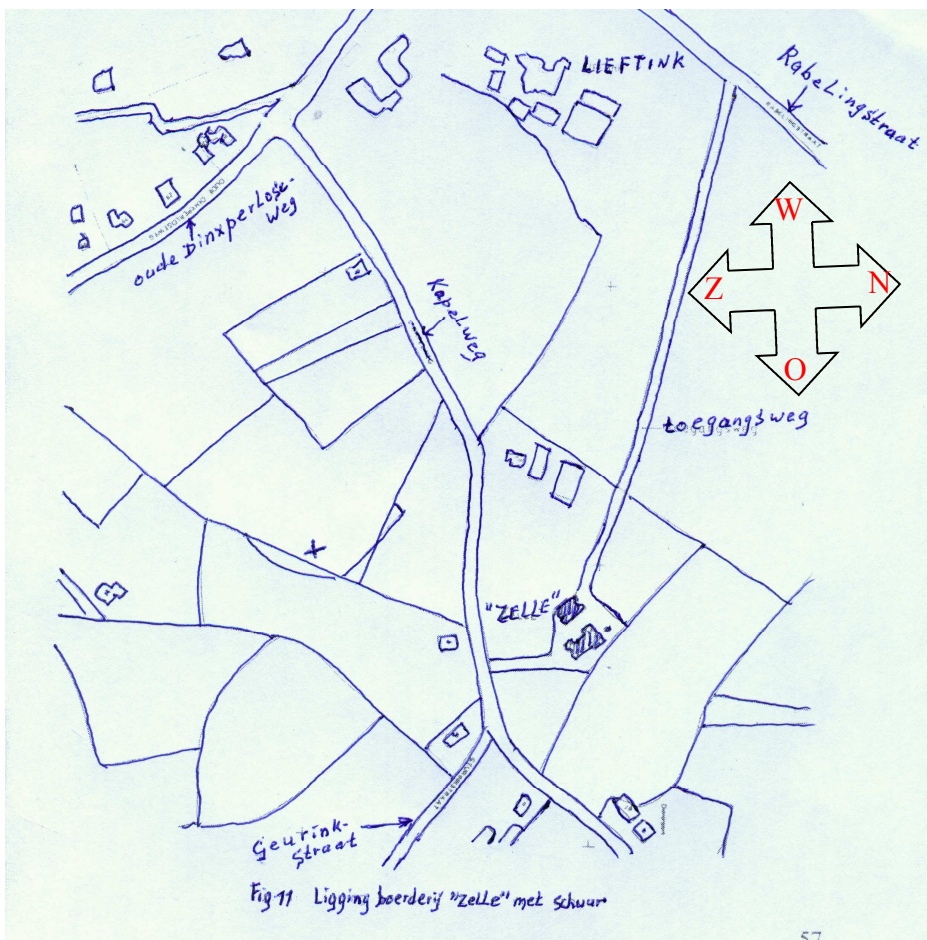 LIEFTINK
Rabelingstraat
RABELINGSTRAAT
oude Dinxperlose-
weg
W
Z
N
O
Kapelweg
toegangsweg
"ZELLE"
Geurink-
straat
Fig 11 Ligging boerderij "Zelle" met schuur
57